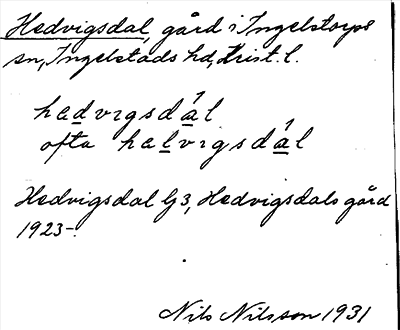 Hedvigsdal, gård i Ingelstorps
sn, Ingelstads hd, Krist. l.
hedvɪgsdál
ofta helvɪgsdál
Hedvigsdal G3, Hedvigsdals gård
1923-.
Nils Nilsson 1931